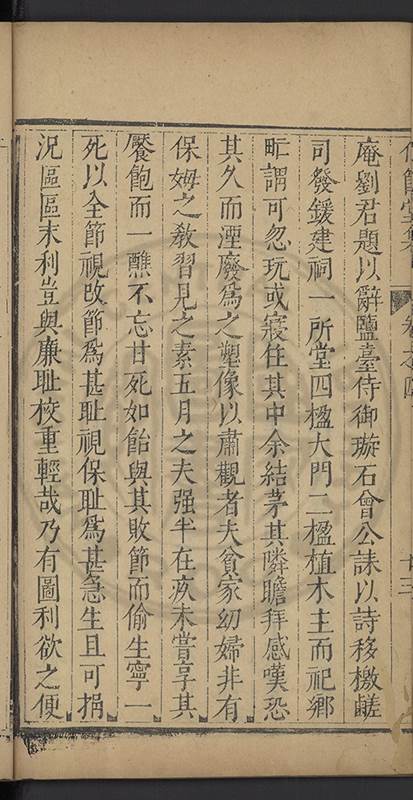 庵劉君題以辭鹽臺侍御璇石曾公誄以詩移檄鹺
司發鍰建祠一所堂四楹大門二楹植木主而祀鄉
甿謂可忽玩或寢住其中余結茅其隣瞻拜感嘆恐
其久而湮廢爲之塑像以肅觀者夫貧家幼婦非有
保姆之敎習見之素五月之夫强半在疚未嘗享其
饜飽而一醮不忘甘死如飴與其敗節而偷生寧一
死以全節視改節爲甚耻視保耻爲甚急生且可捐
況區區末利豈與廉耻校重輕哉乃有圖利欲之便